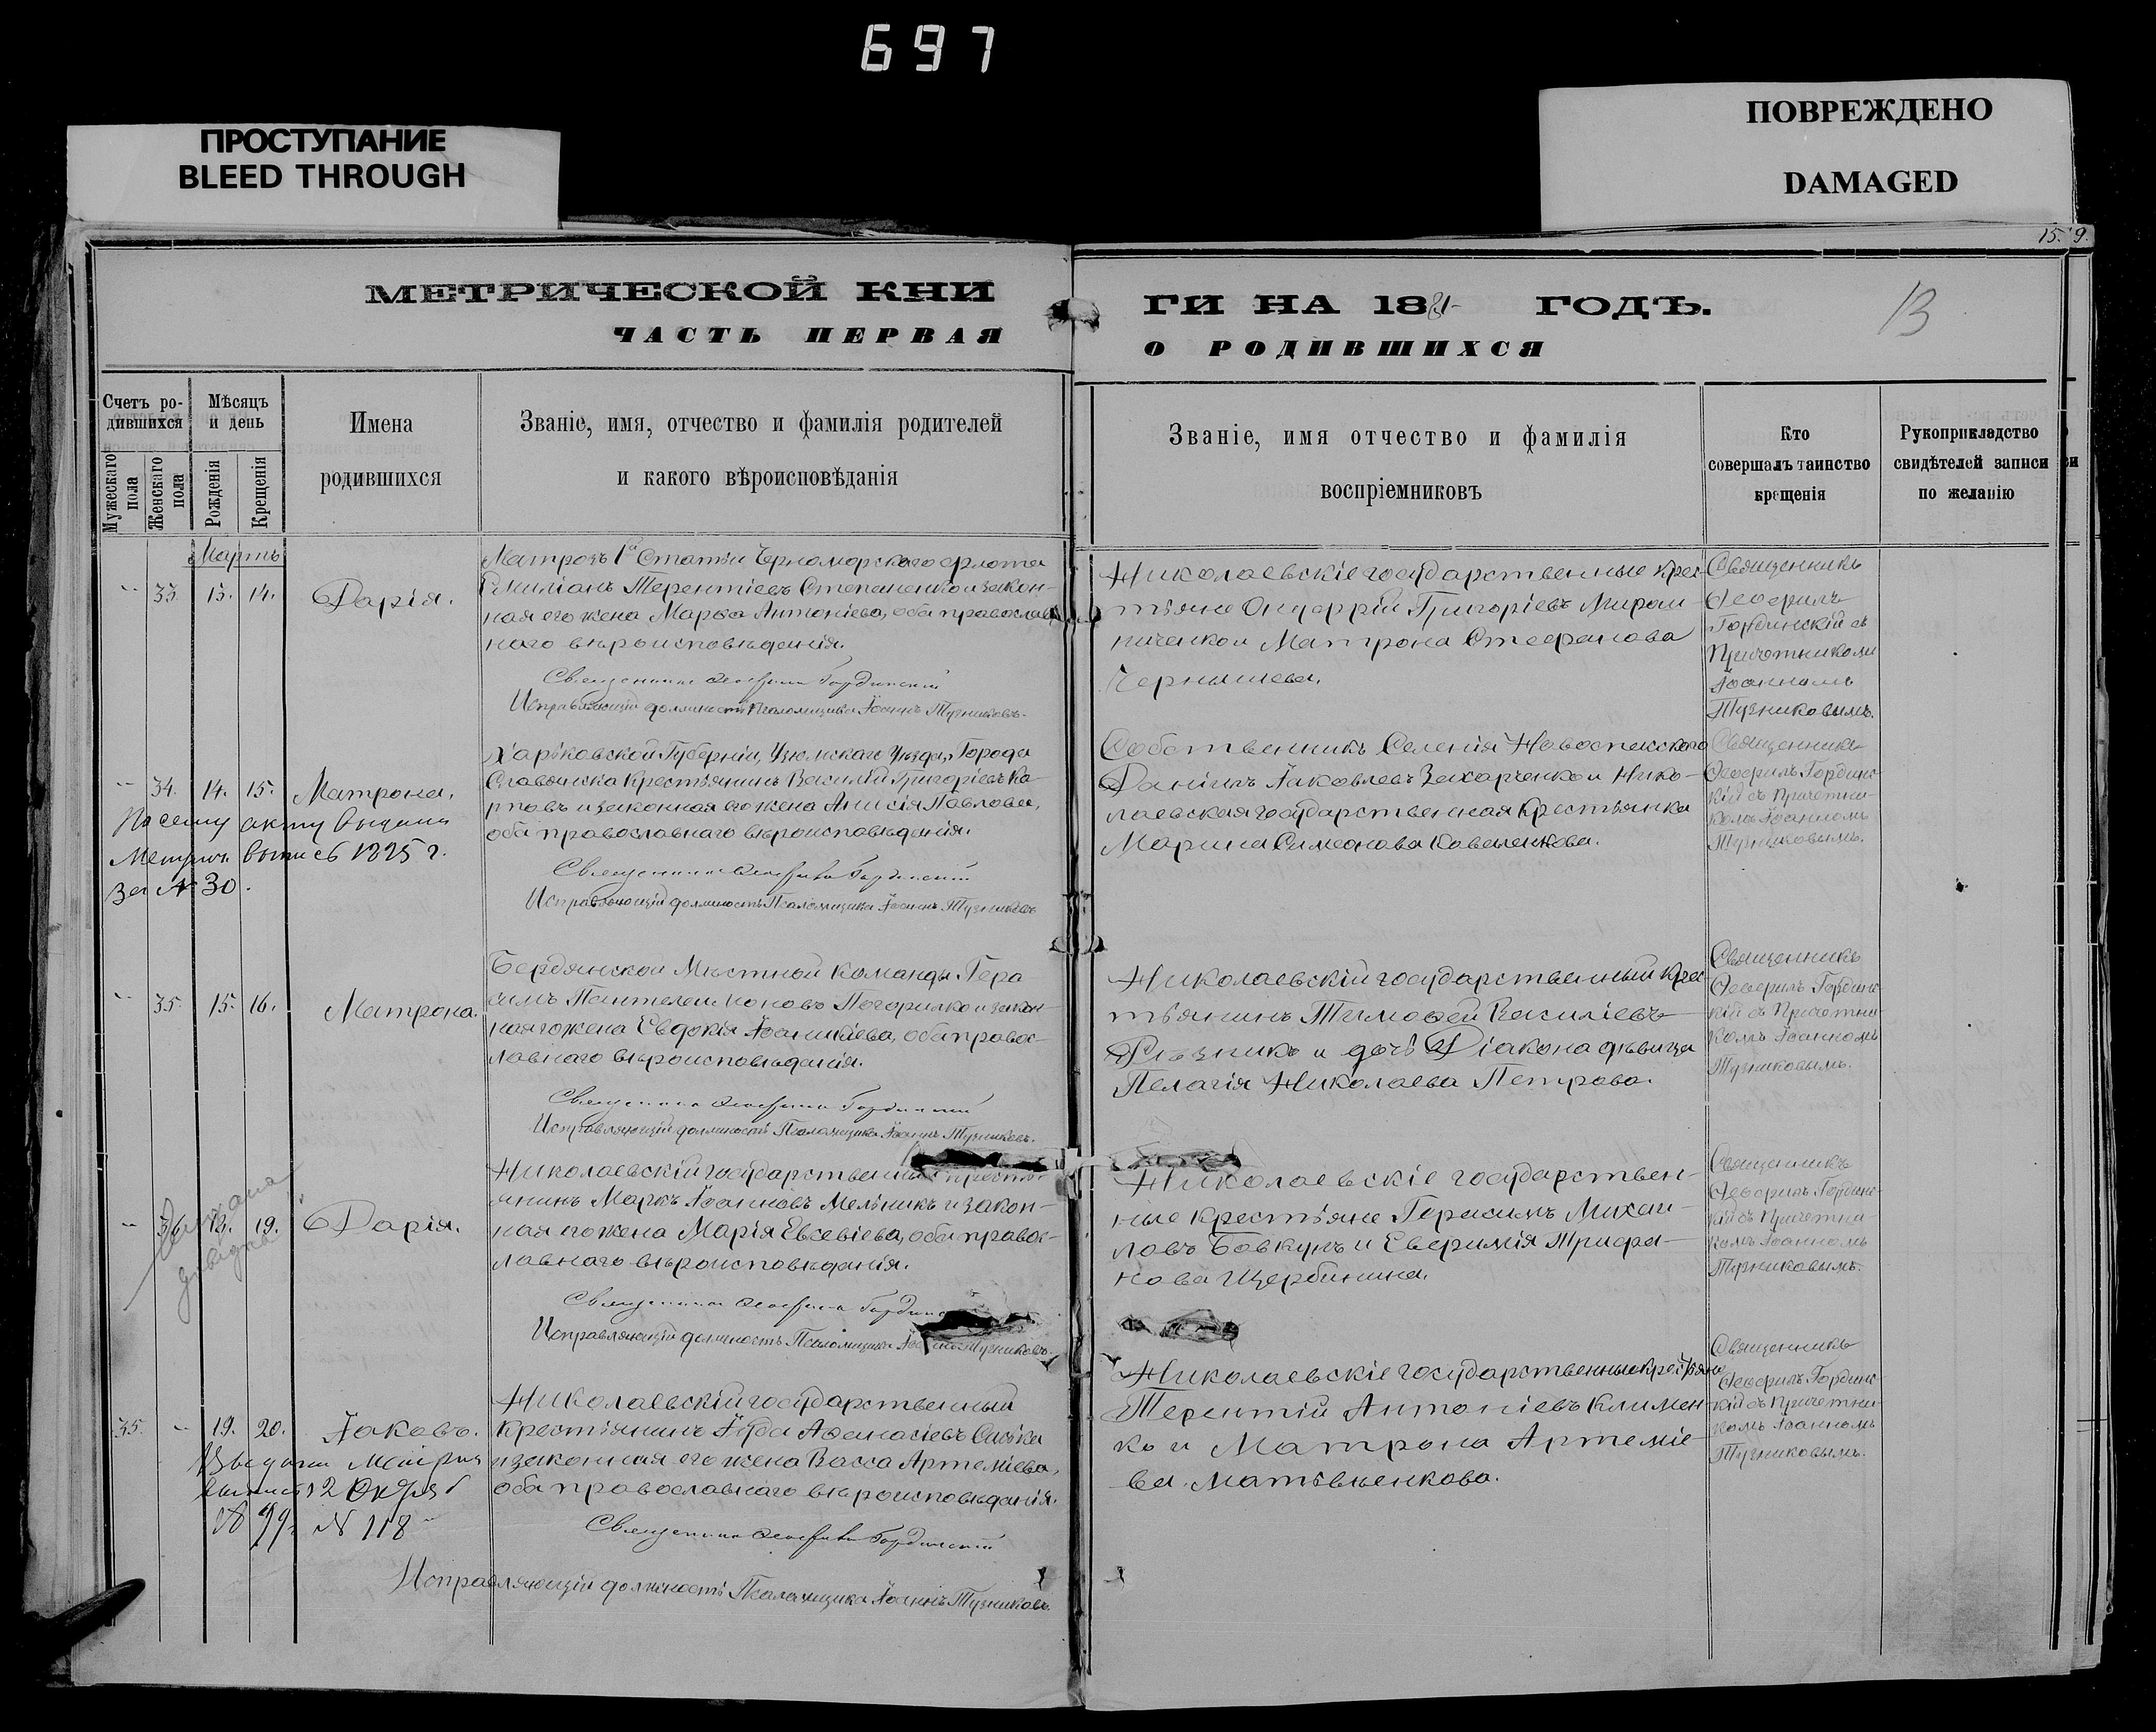 697
ПРОСТУПАНИЕ
BLEED THROUGH
ПОВРЕЖДЕНО
DAMAGED
15. 9.
МЕТРИЧЕСКОЙ КНИ
ГИ НА 1881 ГОДЪ.
13
ЧАСТЬ ПЕРВАЯ
О РОДИВШИХСЯ
Счетъ ро-
дившихся
Мужескаго
пола
Женскаго
пола
Мѣсяцъ
и день
Рожденія
Крещенія
Имена
родившихся
Званіе, имя, отчество и фамилія родителей
и какого вѣроисповѣданія
Званіе, имя отчество и фамилія
воспріемниковъ
Кто
совершалъ таинство
крещенія
Рукоприкладство
свидѣтелей записи
по желанію
Мартъ
33. 13. 14. Дарія.
Матрозъ 1й Статьи Черноморскаго флота
Емиліанъ Терентіевъ Степаненко и закон-
ная его жена Марѳа Антоніева, оба православ
наго вѣроисповѣданія.
Священникъ Ѳеофилъ Гординскій
Исправляющій должность Псаломщика Іоаннъ Тузниковъ.
Николаевскіе государственные крес
тьяне Онуфрій Григоріевъ Мирош
ниченко и Матрона Стефанова
Чернышева.
Священникъ
Ѳеофилъ
Гординскій съ
Причетникомъ
Іоанномъ
Тузниковымъ.
34. 14. 15. Матрона.
По сему акту выдана
Метрич. выпись 1895 г.
за № 30.
Харьковской Губерніи, Изюмскаго Уѣзда, Города
Славянска Крестьянинъ Василій Григоріевъ Ка-
рповъ и законная его жена Анисія Павлова,
оба православнаго вѣроисповѣданія.
Священникъ Ѳеофилъ Гординскій
Исправляющій должность Псаломщика Іоаннъ Тузниковъ
Собственникъ Селенія Новоспасского
Даніилъ Іаковлевъ Захарченко и Нико-
лаевская государственная Крестьянка
Марина Симеонова Коваленкова.
Священникъ
Ѳеофилъ Гординс-
кій съ Причетни-
комъ Іоанномъ
Тузниковымъ.
35. 15. 16. Матрона.
Бердянской Мѣстной Команды Гера
симъ Пантелеимоновъ Погорилко и закон-
ная его жена Евдокія Іоанникіева, оба правос-
лавнаго вѣроисповѣданія.
Священникъ Ѳеофилъ Гординскій
Исправляющій должность Псаломщика Іоаннъ Тузниковъ.
Николаевскій государственный Крес-
тьянинъ Тимоѳей Василіевъ
Рѣзникъ и дочь Діакона дѣвица
Пелагія Николаева Петрова.
Священникъ
Ѳеофилъ Гординс
кій съ Причетни
комъ Іоанномъ
Тузниковымъ.
36. 13. 19. Дарія.
довідка
Николаевскій государственный кресть-
янинъ Маркъ Іоанновъ Мельникъ и закон-
ная его жена Марія Евсевіева, оба правос-
лавнаго вѣроисповѣданія.
Священникъ Ѳеофилъ Гординс
Исправляющій должность Псаломщика Тузниковъ.
Николаевскіе государствен-
ные Крестьяне Герасимъ Михаи-
ловъ Бовкунъ и Евфимія Трифа-
нова Щербинина.
Священникъ
Ѳеофилъ Гординс-
кій съ Причетни
комъ Іоанномъ
Тузниковымъ.
35. 19. 20. Іаковъ.
Выдана Метрич
выпись 12 Октяб
99 г. № 118
Николаевскій государственный
Крестьянинъ Іуда Аѳанасіевъ
и законная его жена Васса Артеміева,
оба православнаго вѣроисповѣданія.
Священникъ Ѳеофилъ Гординскій
Исправляющій должность Псаломщика Іоаннъ Тузниковъ.
Николаевскіе государственные крестьяне
Терентій Антоніевъ Климен-
ко и Матрона Артеміе-
ва Матвѣенкова.
Священникъ
Ѳеофилъ Гординс-
кій съ Причетни
комъ Іоанномъ
Тузниковымъ.